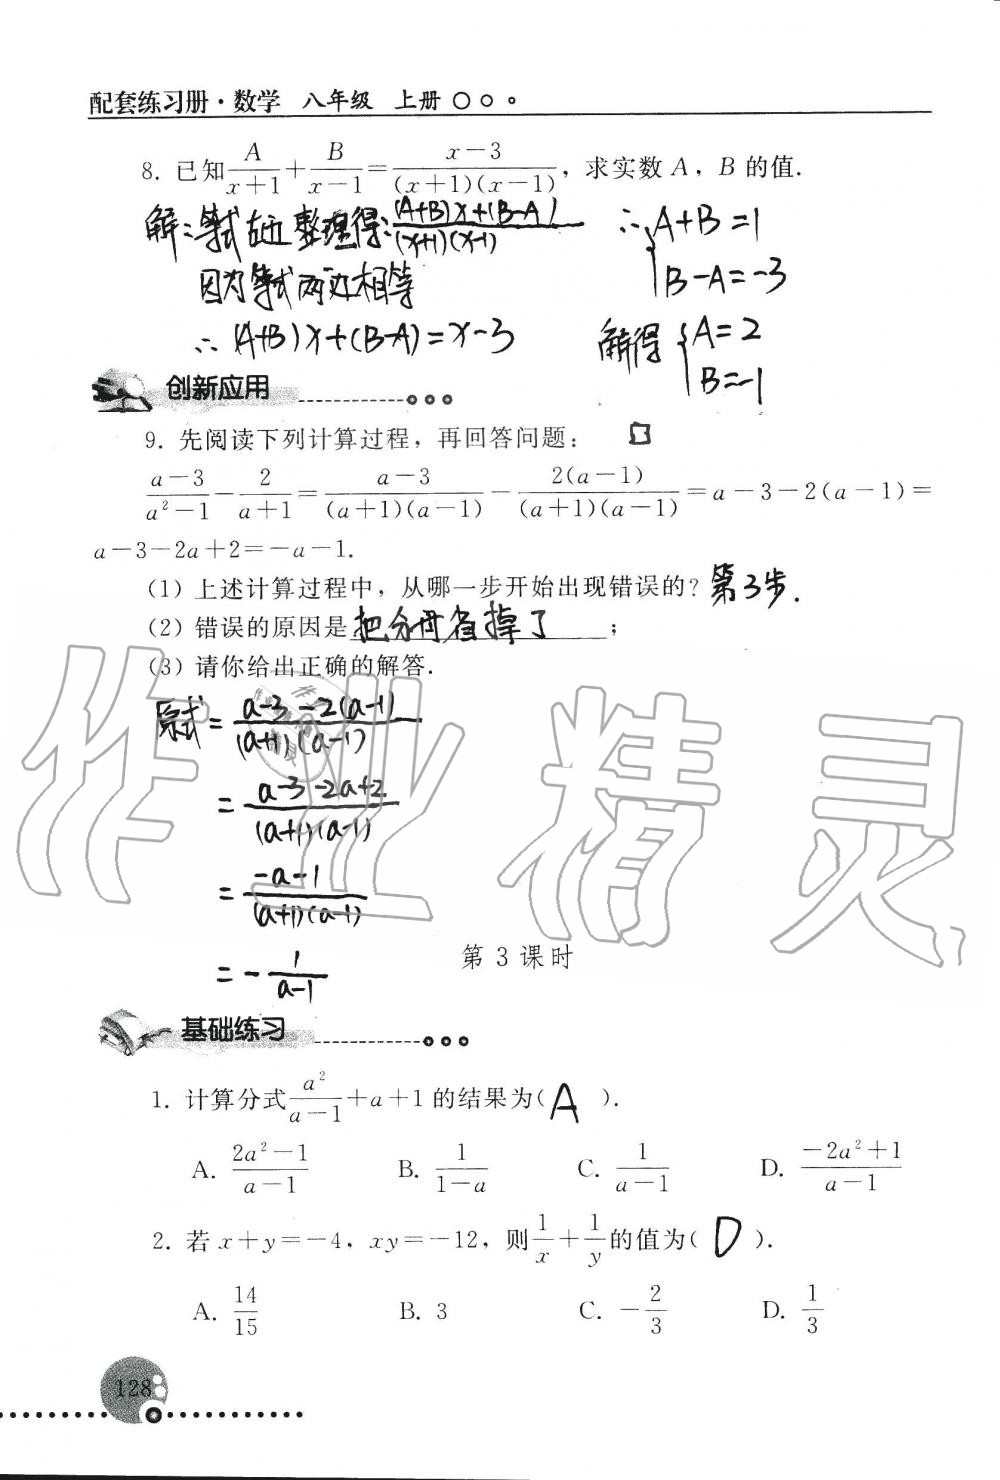 配套练习册·数学 八年级 上册
8. 已知 A/(x+1) + B/(x-1) = (x-3)/((x+1)(x-1)), 求实数 A, B 的值.
解: 等式左边整理得: ((A+B)x+(B-A))/((x+1)(x-1))
因为等式两边相等
∴ (A+B)x+(B-A)=x-3
∴ { A+B=1
B-A=-3
解得 { A=2
B=-1
创新应用
9. 先阅读下列计算过程, 再回答问题:
(a-3)/(a²-1) - 2/(a+1) = (a-3)/((a+1)(a-1)) - 2(a-1)/((a+1)(a-1)) = a-3-2(a-1)=
a-3-2a+2=-a-1.
(1) 上述计算过程中, 从哪一步开始出现错误的? 第3步.
(2) 错误的原因是 把分母省掉了 ;
(3) 请你给出正确的解答.
原式 = (a-3-2(a-1))/((a+1)(a-1))
= (a-3-2a+2)/((a+1)(a-1))
= (-a-1)/((a+1)(a-1))
= - 1/(a-1)
第 3 课时
基础练习
1. 计算分式 a²/(a-1) +a+1 的结果为( A ).
A. (2a²-1)/(a-1) B. 1/(1-a) C. 1/(a-1) D. (-2a²+1)/(a-1)
2. 若 x+y=-4, xy=-12, 则 1/x + 1/y 的值为( D ).
A. 14/15 B. 3 C. -2/3 D. 1/3
128
作业精灵